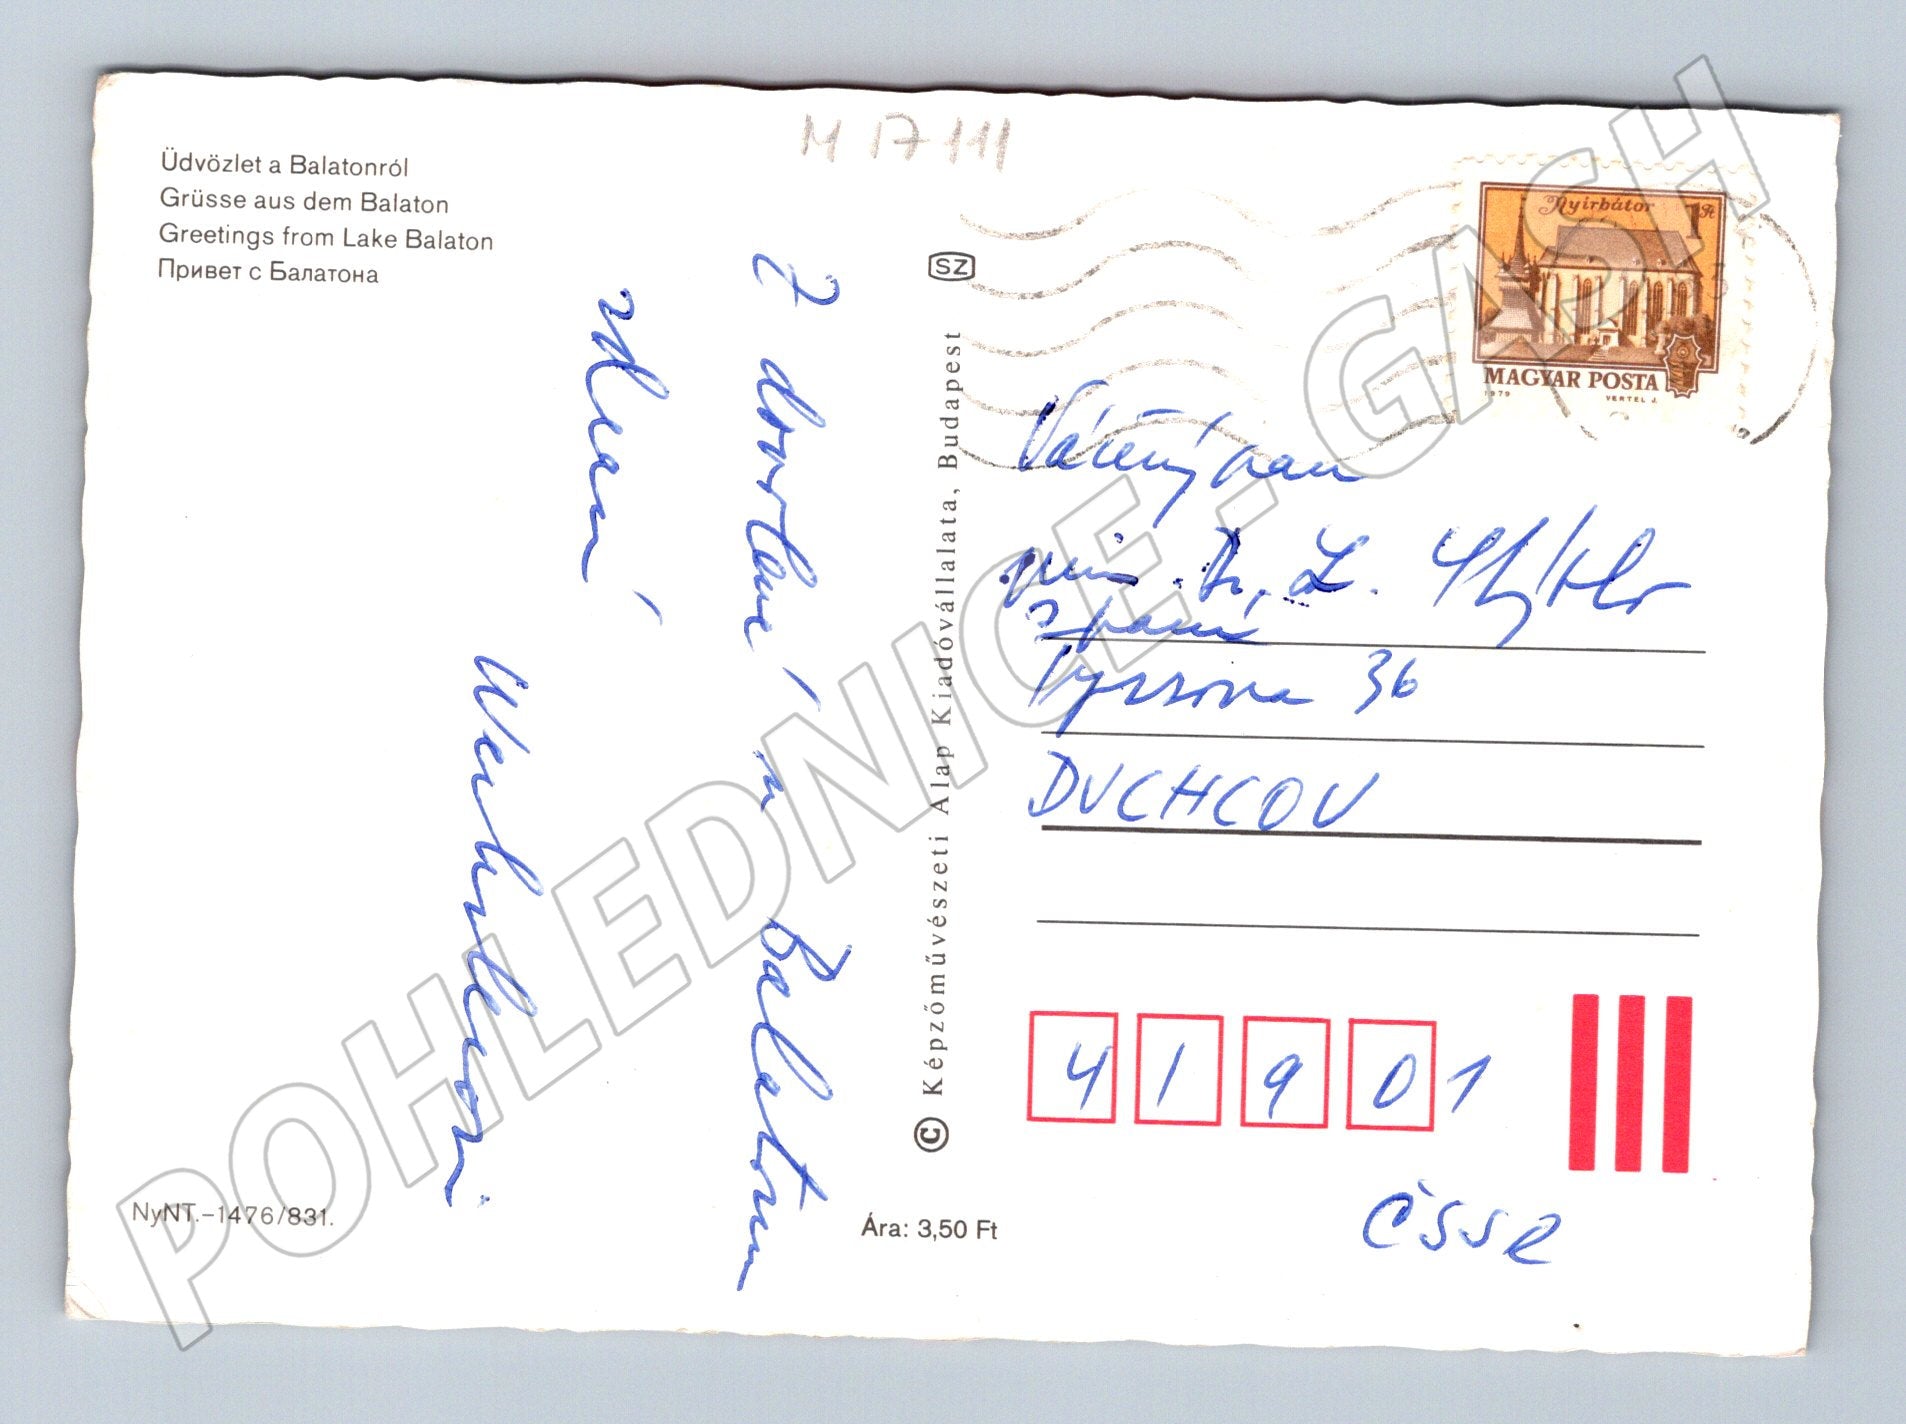 M 17 111
Üdvözlet a Balatonról
Grüsse aus dem Balaton
Greetings from Lake Balaton
Привет с Балатона
Z dovolené u Balatonu
zdraví
SZ
© Képzőművészeti Alap Kiadóvállalata, Budapest
Nyírbátor 1 Ft
MAGYAR POSTA
1979 VERTEL J.
Vážený pan
Dr. L.
s paní
Tyršova 36
DUCHCOV
41901
ČSSR
NyNT.-1476/831.
Ára: 3,50 Ft
POHLEDNICE - GASH